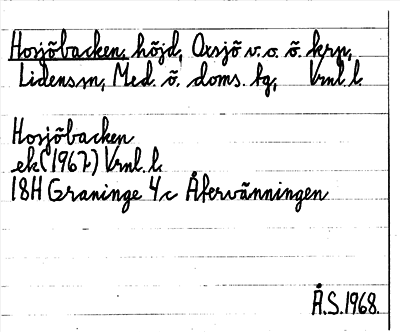 Horjöbacken, höjd, Oxsjö v.o. ö. krn,
Lidens sn, Med. ö. doms. hg, Vrnl. l.
Horjöbacken
ek (1967) Vrnl. l.
18H Graninge 4c Återvänningen
Å.S. 1968.